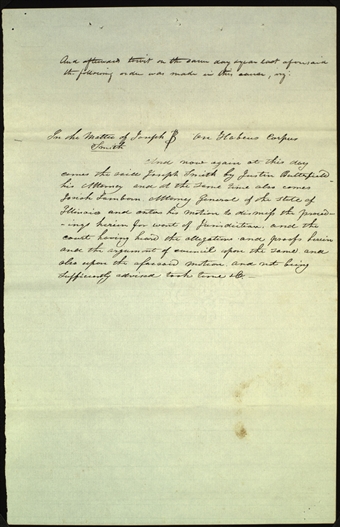 And afterward towit on the same day & year last aforesaid
the following order was made in this cause, viz:
In the Matter of Joseph Smith } on Habeus Corpus
And now again at this day
comes the said Joseph Smith by Justin Butterfield
his Attorney and at the same time also comes
Josiah Lamborn Attorney General of the State of
Illinois and enters his motion to dismiss the proceed-
-ings herein for want of Jurisdiction, and the
court having heard the allegations and proofs herein
and the argument of council upon the same and
also upon the afassaid motion and not being
sufficiently advised took time &c.